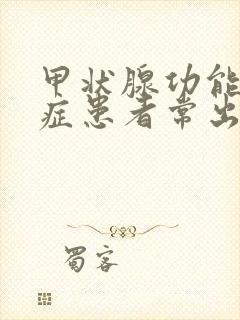 甲状腺功能
症患者常出
蜀客